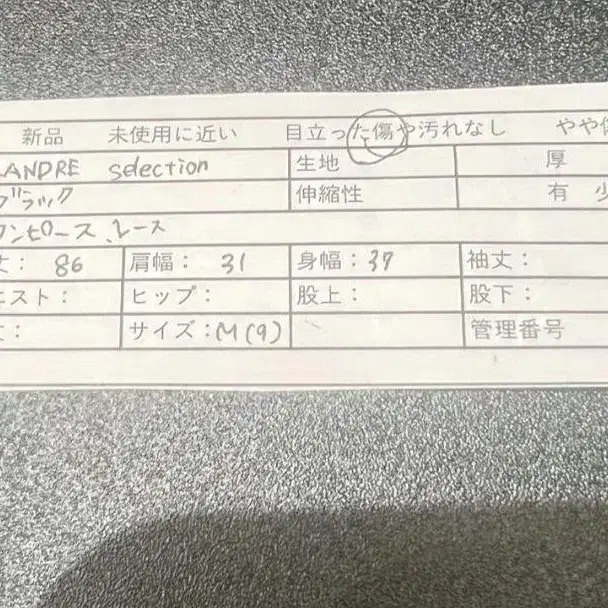 新品 未使用に近い 目立った傷や汚れなし やや傷
ANDRE selection 生地 厚
ブラック 伸縮性 有 少
ワンピース、レース
丈: 86 肩幅: 31 身幅: 37 袖丈:
エスト: ヒップ: 股上: 股下:
丈: サイズ:M(9) 管理番号